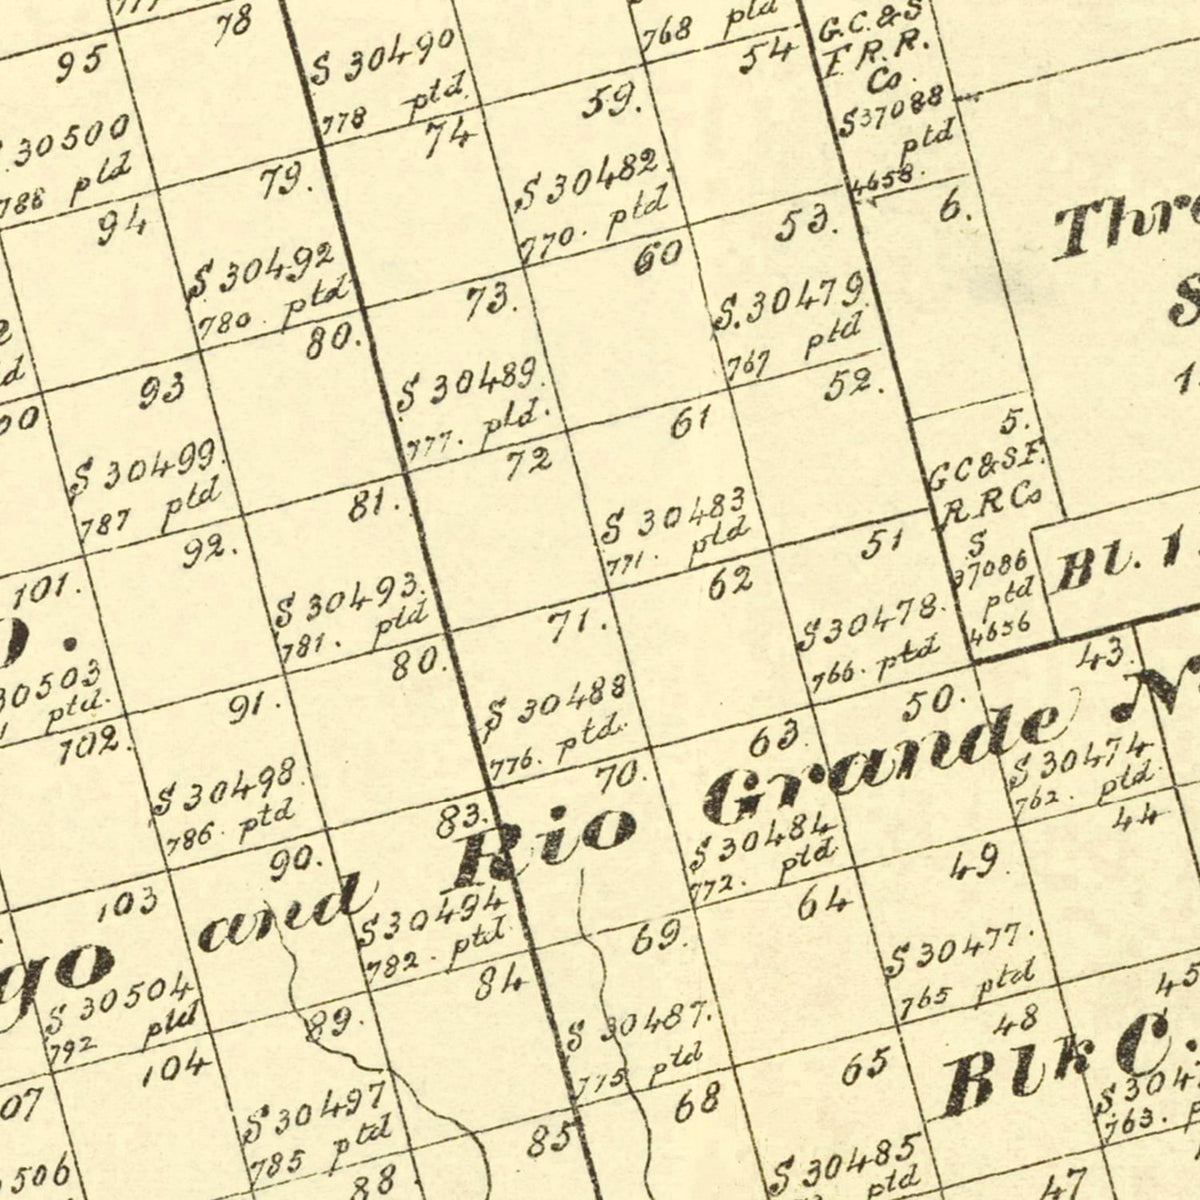 78
95
S 30490
778 ptd.
768 ptd
54
G.C.&S
F R.R.
Co.
S37088
ptd
4658.
30500
788 ptd
79.
74
59.
94
S 30492
780. ptd
S 30482.
770. ptd
53.
6.
Thre
S
93
80.
73.
60
S.30479.
767 ptd
52.
S 30499.
787 ptd
S 30489.
777. ptd.
61
5.
GC&SF.
RRCo
S
37086
ptd
4656
Bl. 1
101.
92.
81.
72
S 30483
771. ptd
51
S 30493.
781. ptd
62
S30478.
766. ptd
30503
ptd.
102.
91.
80.
71.
S 30488
776. ptd.
50.
43.
S 30498.
786. ptd
83.
70.
63.
S 30474
762. ptd.
go and Rio Grande N
103
90.
S 30494
782. ptd.
S 30484
772. ptd
49.
44
S 30504
792 ptd
84
69.
64
S 30477.
765 ptd
104
89.
S 30487.
775 ptd
65
48
45
Blk C.
07
S 30497
785 ptd
85
68
S 3047
763. p
506
88
S 30485
ptd
47